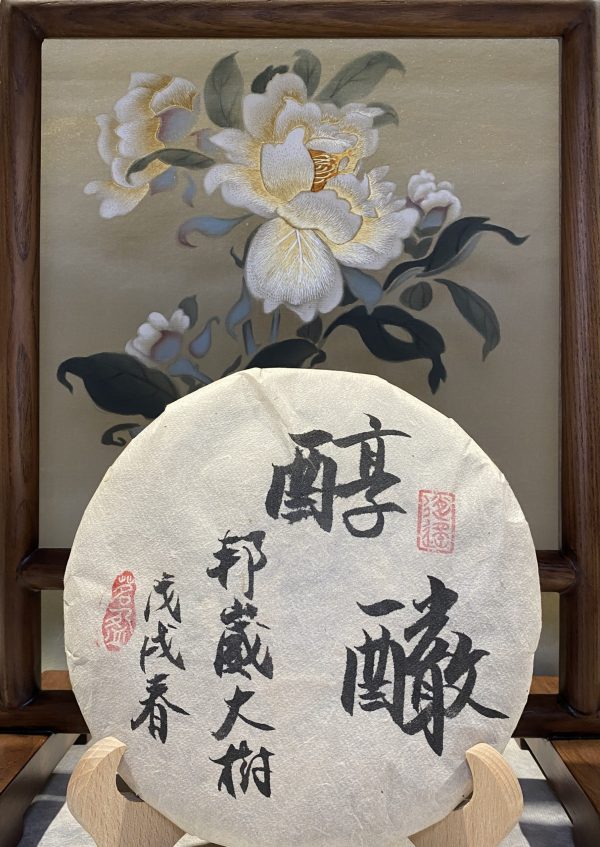 醇
釅
邦崴大樹
戊戌春